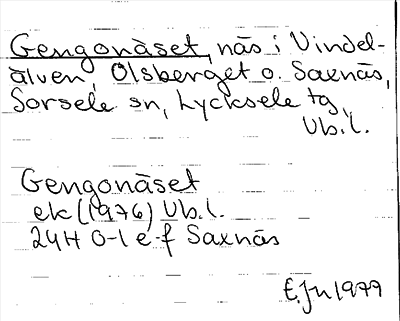 Gengonäset, näs i Vindel-
älven, Olsberget o. Saxnäs,
Sorsele sn, Lycksele tg,
Vb.l.
Gengonäset
ek (1976) Vb.l.
24H 0-1 e-f Saxnäs
E.Jn 1977